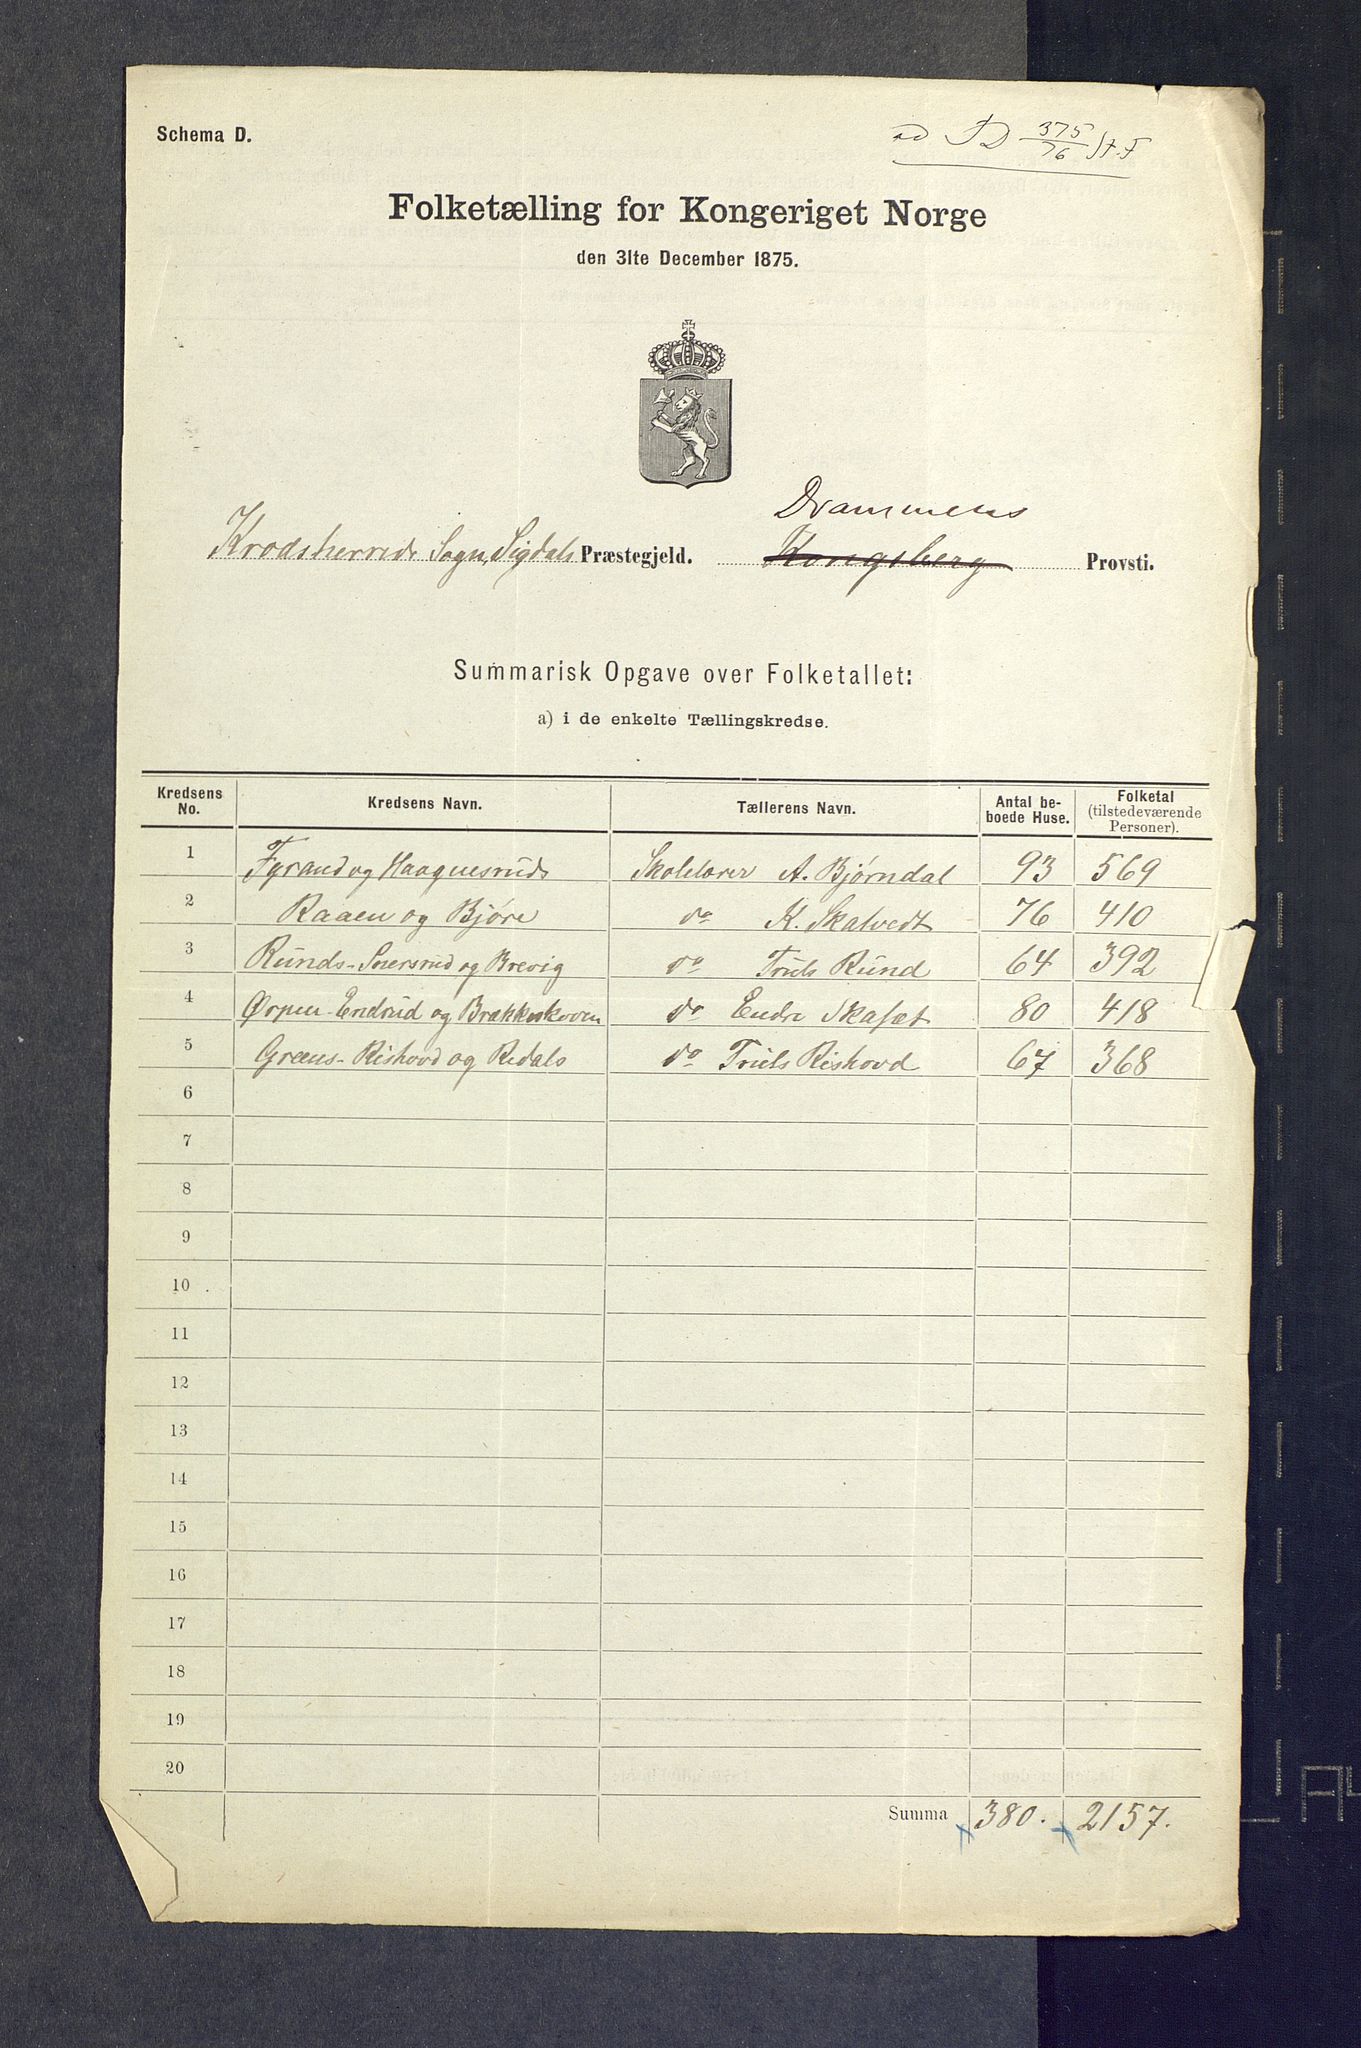 Schema D.
ad J D 375/76 St. F
Folketælling for Kongeriget Norge
den 31te December 1875.
Drammens
Krodsherreds Sogn, Sigdals Præstegjeld. Kongsberg Provsti.
Summarisk Opgave over Folketallet:
a) i de enkelte Tællingskredse.
Kredsens No. Kredsens Navn. Tællerens Navn. Antal beboede Huse. Folketal (tilstedeværende Personer).
1 Fyrand og Haagnesruds Skolelærer A. Bjørndal 93 569
2 Raaen og Bjøre do K. Skalvedt 76 410
3 Runds-Snersrud og Brevig do Truls Rund 64 392
4 Ørpen-Endrud og Brækkeskoven do Endre Skasæt 80 418
5 Greens-Rishovd og Redals do Truls Rishovd 67 368
6
7
8
9
10
11
12
13
14
15
16
17
18
19
20
Summa 380. 2157.